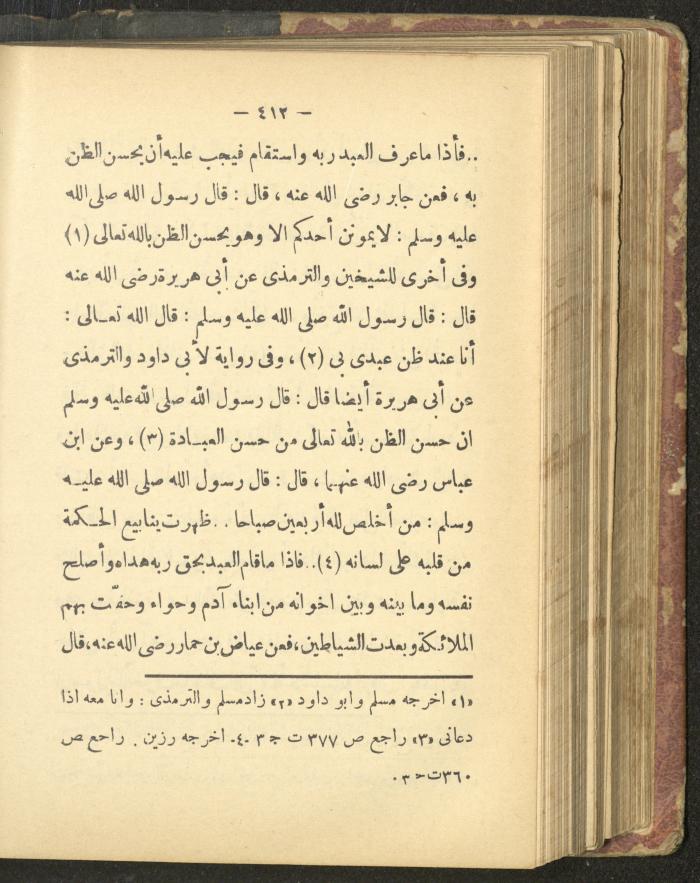 — ٤١٢ —
.. فأذا ماعرف العبد ربه واستقام فيجب عليه أن يحسن الظن
به ، فعن جابر رضى الله عنه ، قال : قال رسول الله صلى الله
عليه وسلم : لايموتن أحدكم الا وهو يحسن الظن بالله تعالى (١)
وفى أخرى للشيخين والترمذى عن أبى هريرة رضى الله عنه
قال : قال رسول الله صلى الله عليه وسلم : قال الله تعـالى :
أنا عند ظن عبدى بى (٢) ، وفى رواية لأبى داود والترمذى
عن أبى هريرة أيضا قال : قال رسول الله صلى الله عليه وسلم
ان حسن الظن بالله تعالى من حسن العبـادة (٣) ، وعن ابن
عباس رضى الله عنهما ، قال : قال رسول الله صلى الله عليـه
وسلم : من أخلص لله أربعين صباحا . . ظهرت ينابيع الحـكمة
من قلبه على لسانه (٤) .. فاذا ماقام العبد بحق ربه هداه وأصلح
نفسه وما بينه وبين اخوانه من ابناء آدم وحواء وحفّت بهم
الملائكة وبعدت الشياطين ، فعن عياض بن حمار رضى الله عنه ، قال
«١» اخرجه مسلم وابو داود «٢» زاد مسلم والترمذى : وانا معه اذا
دعانى «٣» راجع ص ٣٧٧ ت ج ٣ -٤- اخرجه رزين . راجع ص
٣٦٠ ت ج ٣ .